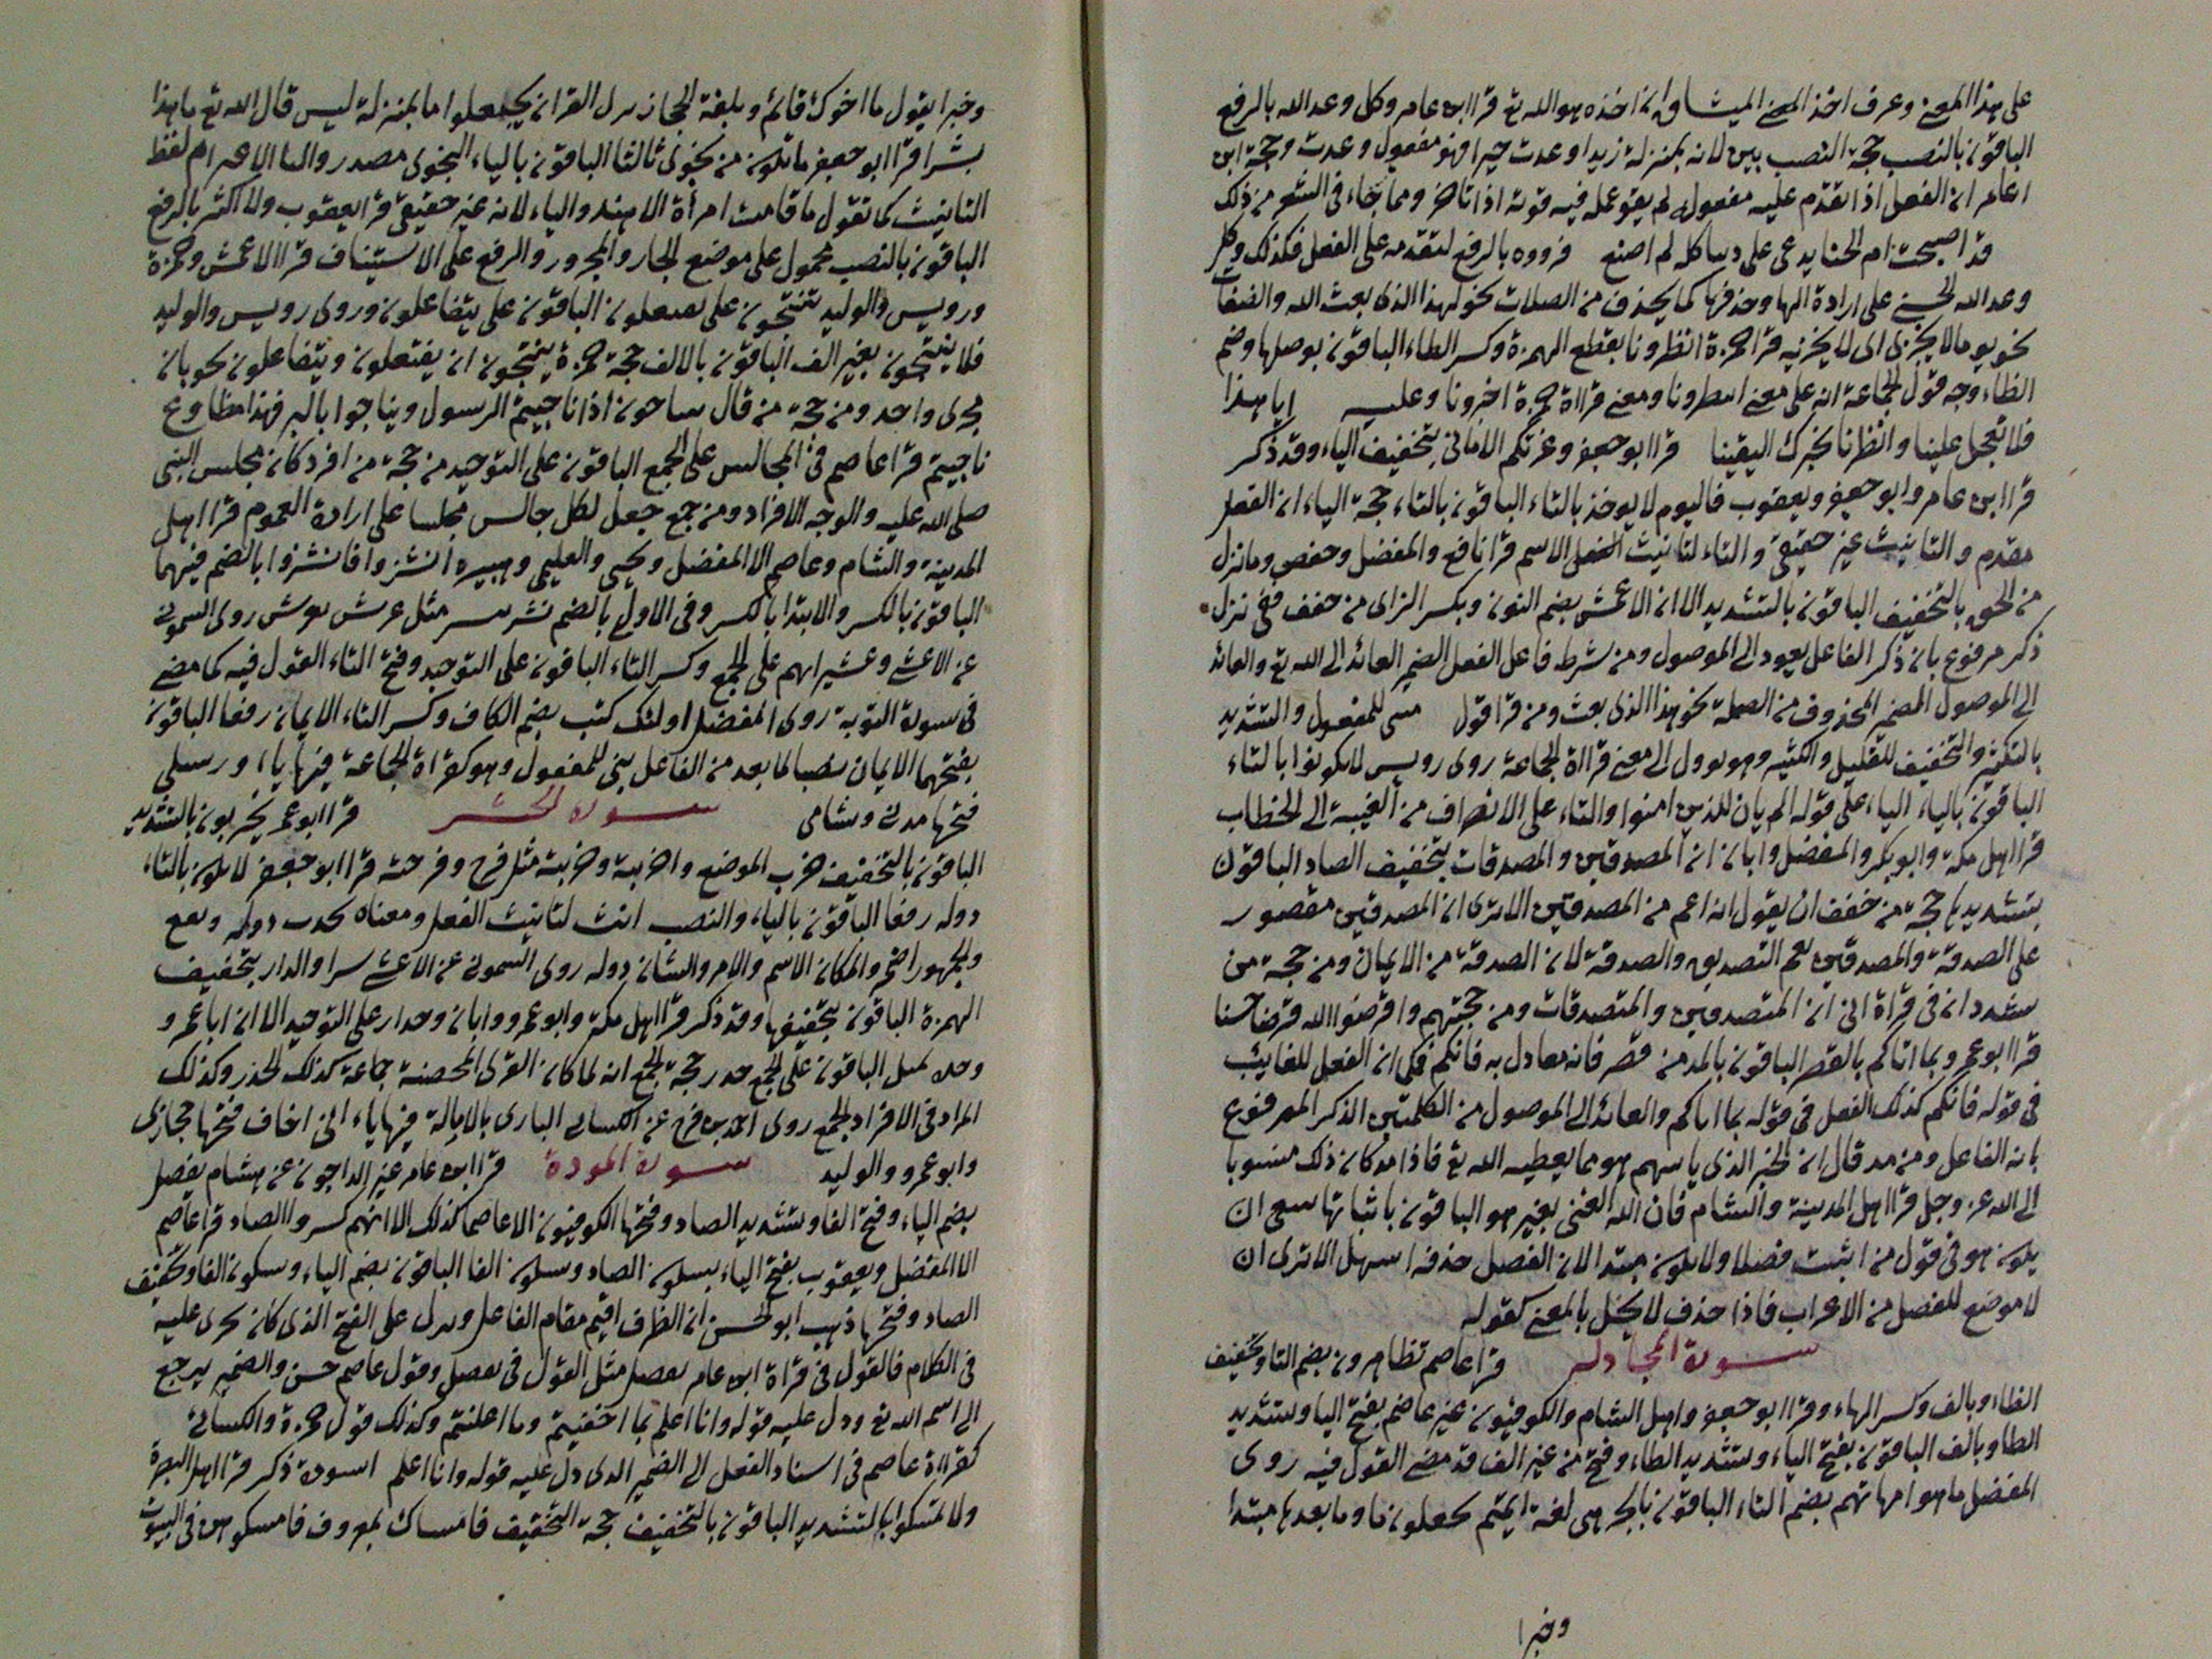 على هذا المعنى وعرف اخذ المعنى الميثاق ان اخذه هو الله تع قرا ابن عامر وكل وعد الله بالرفع
الباقون بالنصب حجة النصب بين لانه بمنزلة زيدا وعدت خيرا فهو مفعول وعدت وحجة ابن
عامر ان الفعل اذا تقدم عليه مفعوله لم يقو عمله فيه قوته اذا تاخر ومما جاء في الشعر من ذلك
قد اصبحت ام الخيار تدعى على دنبا كله لم اصنع فرووه بالرفع لتقدمه على الفعل فكذلك وكل
وعد الله الحسنى على ارادة الها وحذفها كما يحذف من الصلات نحو اهذا الذي بعث الله والصفات
نحو يوما لا يجزى اى لا يجزيه قرا حمزة انظرونا بقطع الهمزة وكسر الظاء الباقون بوصلها وضم
الظاء وجه قول الجماعة انه على معنى انتظرونا ومعنى قراءة حمزة اخرونا وعليه ايا هذا
فلا تعجل علينا وانظرنا نخبرك اليقينا قرا ابو جعفر وغرتكم الاماني بتخفيف الياء وقد ذكر
قرا ابن عامر وابو جعفر ويعقوب فاليوم لا يوخذ بالتاء الباقون بالتاء حجة الياء ان الفعل
مقدم والتانيث غير حقيقي والتاء لتانيث الفعل الاسم قرا نافع والمفضل وحفص وما نزل
من الحق بالتخفيف الباقون بالتشديد الا ان الاعمش بضم النون وبكسر الزاى من خفف ففي نزل
ذكر مرفوع بان ذكر الفاعل يعود الى الموصول ومن شرط فاعل الفعل الضمير العائد الى الله تع والعائد
الى الموصول الضمير المحذوف من الصلة نحو هذا الذي بعث ومن قرا قول مبنى للمفعول والتشديد
بالتكثير والتخفيف للقليل والكثير وهو يوول الى معنى قراءة الجماعة روى رويس لا يكونوا بالتاء
الباقون بالياء الياء على قوله الم يان للذين امنوا والتاء على الانصراف من الغيبة الى الخطاب
قرا اهل مكة وابو بكر والمفضل وابان ان المصدقين والمصدقات بتخفيف الصاد الباقون
بتشديدها حجة من خفف ان يقول انه اعم من المصدقين الا ترى ان المصدقين مقصور
على الصدقة والمصدقين يعم التصديق والصدقة لان الصدقة من الايمان ومن حجة من
شدد انه في قراءة ابي ان المتصدقين والمتصدقات ومن حجتهم واقرضوا الله قرضا حسنا
قرا ابو عمرو بما اتاكم بالقصر الباقون بالمد من قصر فانه معادل به فاتكم فكما ان الفعل للغايب
في قوله فاتكم كذلك الفعل في قوله بما اتاكم والعائد الى الموصول من الكلمتين الذكر المرفوع
بانه الفاعل ومن مد قال ان الخير الذي ياتيهم هو مما يعطيه الله تع فاذا مد كان ذلك منسوبا
الى الله عز وجل قرا اهل المدينة والشام فان الله الغنى بغير هو الباقون باثباتها ينبغي ان
يكون هو في قول من اثبت فضلا ولا يكون مبتدا لان الفصل حذفه اسهل الا ترى ان
لا موضع للفصل من الاعراب فاذا حذف لا يخل بالمعنى كقوله
سورة المجادلة قرا عاصم تظاهرون بضم التا وتخفيف
الظاء وبالف وكسر الهاء وقرا ابو جعفر واهل الشام والكوفيون غير عاصم بفتح اليا وتشديد
الظا وبالف الباقون بفتح الياء وتشديد الظاء وفتح من غير الف قد مضى القول فيه روى
المفضل ما هو امهاتهم بضم التاء الباقون بالجر هي لغة تميم يجعلون ما وما بعدها مبتدا
وخبرا
وخبرا يقول ما اخوك قائم وبلغة الحجاز نزل القران يجعلوا ما بمنزلة ليس قال الله تع ما هذا
بشرا قرا ابو جعفر ما تكون من نجوى ثالثا الباقون بالياء النجوى مصدر والتا لاعرام لفظ
التانيث كما تقول ما قامت امرأة الا هند والياء لانه غير حقيقي قرا يعقوب ولا اكثر بالرفع
الباقون بالنصب محمول على موضع الجار والمجرور والرفع على الاستيناف قرا الاعمش وحمزة
ورويس والوليد تنتجون على يفتعلون الباقون على يتفاعلون وروى رويس والوليد
فلا ينتجون بغير الف الباقون بالالف حجة حمزة ينتجون ان يفتعلون ويتفاعلون نحو بان
مجرى واحد ومن حجة من قال يتناجون اذا ناجيتم الرسول ويناجوا بالبر فهذا مطاوع
ناجيتم قرا عاصم في المجالس على الجمع الباقون على التوحيد من حجة من افرد كان مجلس النبي
صلى الله عليه والوجه الافراد ومن جمع جعل لكل جالس مجلسا على ارادة العموم قرا اهل
المدينة والشام وعاصم الا المفضل ويحيى والعليمي وهبيره انشزوا فانشزوا بالضم فيهما
الباقون بالكسر والابتدا بالكسر وفي الاولى بالضم نشر ينشر مثل عرش يعرش روى الشموني
عن الاعشى وعشيراتهم على الجمع وكسر التاء الباقون على التوحيد وفتح التاء القول فيه كما مضى
في سورة التوبة روى المفضل اولئك كتب بضم الكاف وكسر التاء الايمان رفعا الباقون
بفتحهما الايمان نصبا لما بعد من الفاعل بني للمفعول وهو كقراءة الجماعة فيها ياء ورسلى
فتحها مدنى وشامى سورة الحشر قرا ابو عمر يخربون بالتشديد
الباقون بالتخفيف خرب الموضع واخربية وخربية مثل فرح وفرحته قرا ابو جعفر لا يكون بالتاء
دولة رفعا الباقون بالياء والنصب انث لتانيث الفعل ومعناه يحدث دولة ويقع
والجمهور اضح والمكان الاسم والامر والشان دولة روى الشموني عن الاعشى سرا والدار بتخفيف
الهمزة الباقون بتخفيفها وقد ذكر قرا اهل مكة وابو عمرو وابان وجدار على التوحيد الا ان ابا عمرو
وحده يميل الباقون على الجمع جدر حجة الجمع انه لما كان القرى المحصنة جماعة كذلك الجدر وكذلك
المراد في الافراد الجمع روى احمد بن فرح عن الكسائي البارى بالامالة فيها ياء انى اخاف فتحها حجازى
وابو عمرو والوليد سورة المودة قرا ابن عامر غير الداجون عن هشام يفصل
بضم الياء وفتح الفا وتشديد الصاد وفتحها الكوفيون الا عاصما كذلك الا انهم كسروا الصاد قرا عاصم
الا المفضل ويعقوب بفتح الياء بسكون الصاد وسكون الفا الباقون بضم الياء وسكون الفا وتخفيف
الصاد وفتحها ذهب ابو الحسن ان الظرف اقيم مقام الفاعل وترك على الفتح الذي كان يجرى عليه
في الكلام فالقول في قراءة ابن عامر يفصل مثل القول في يفصل وقول عاصم حسن والضمير يرجع
الى اسم الله تع ودل عليه قوله وانا اعلم بما اخفيتم وما اعلنتم وكذلك قول حمزة والكسائي
كقراءة عاصم في اسناد الفعل الى الضمير الذي دل عليه قوله وانا اعلم اسوة ذكر قرا اهل البصرة
ولا تمسكوا بالتشديد الباقون بالتخفيف حجة التخفيف فامساك بمعروف فامسكوهن في البيوت